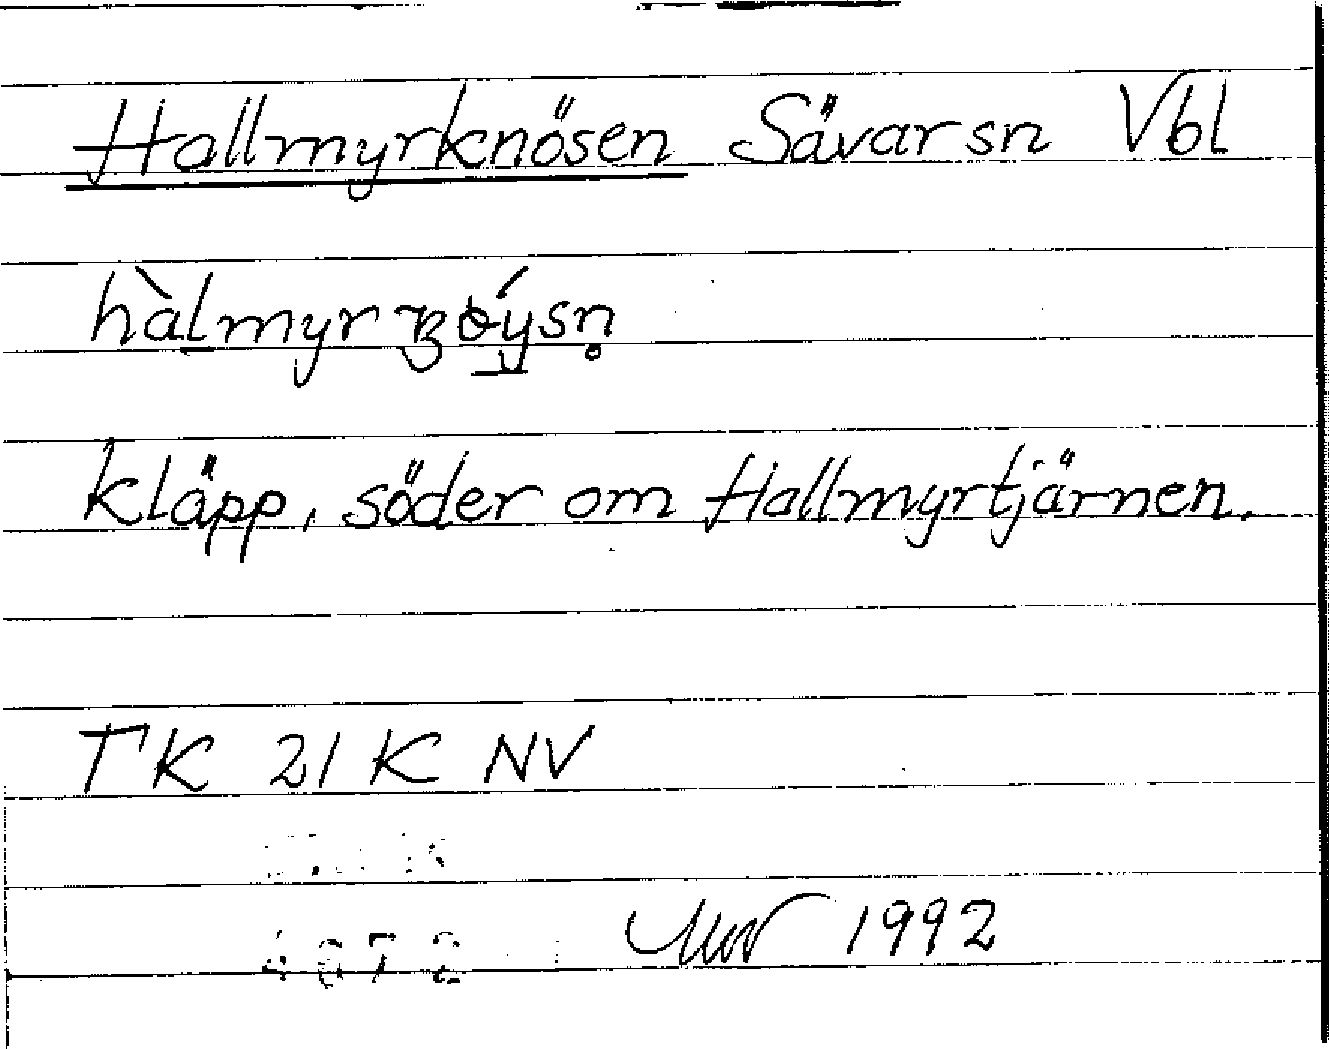 Hallmyrknösen Sävar sn Vbl
kläpp, söder om Hallmyrtjärnen.
TK 21 K NV
1992